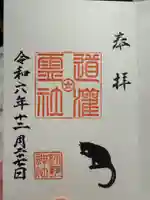 奉拝
道灌
霊社
令和六年十二月二七日